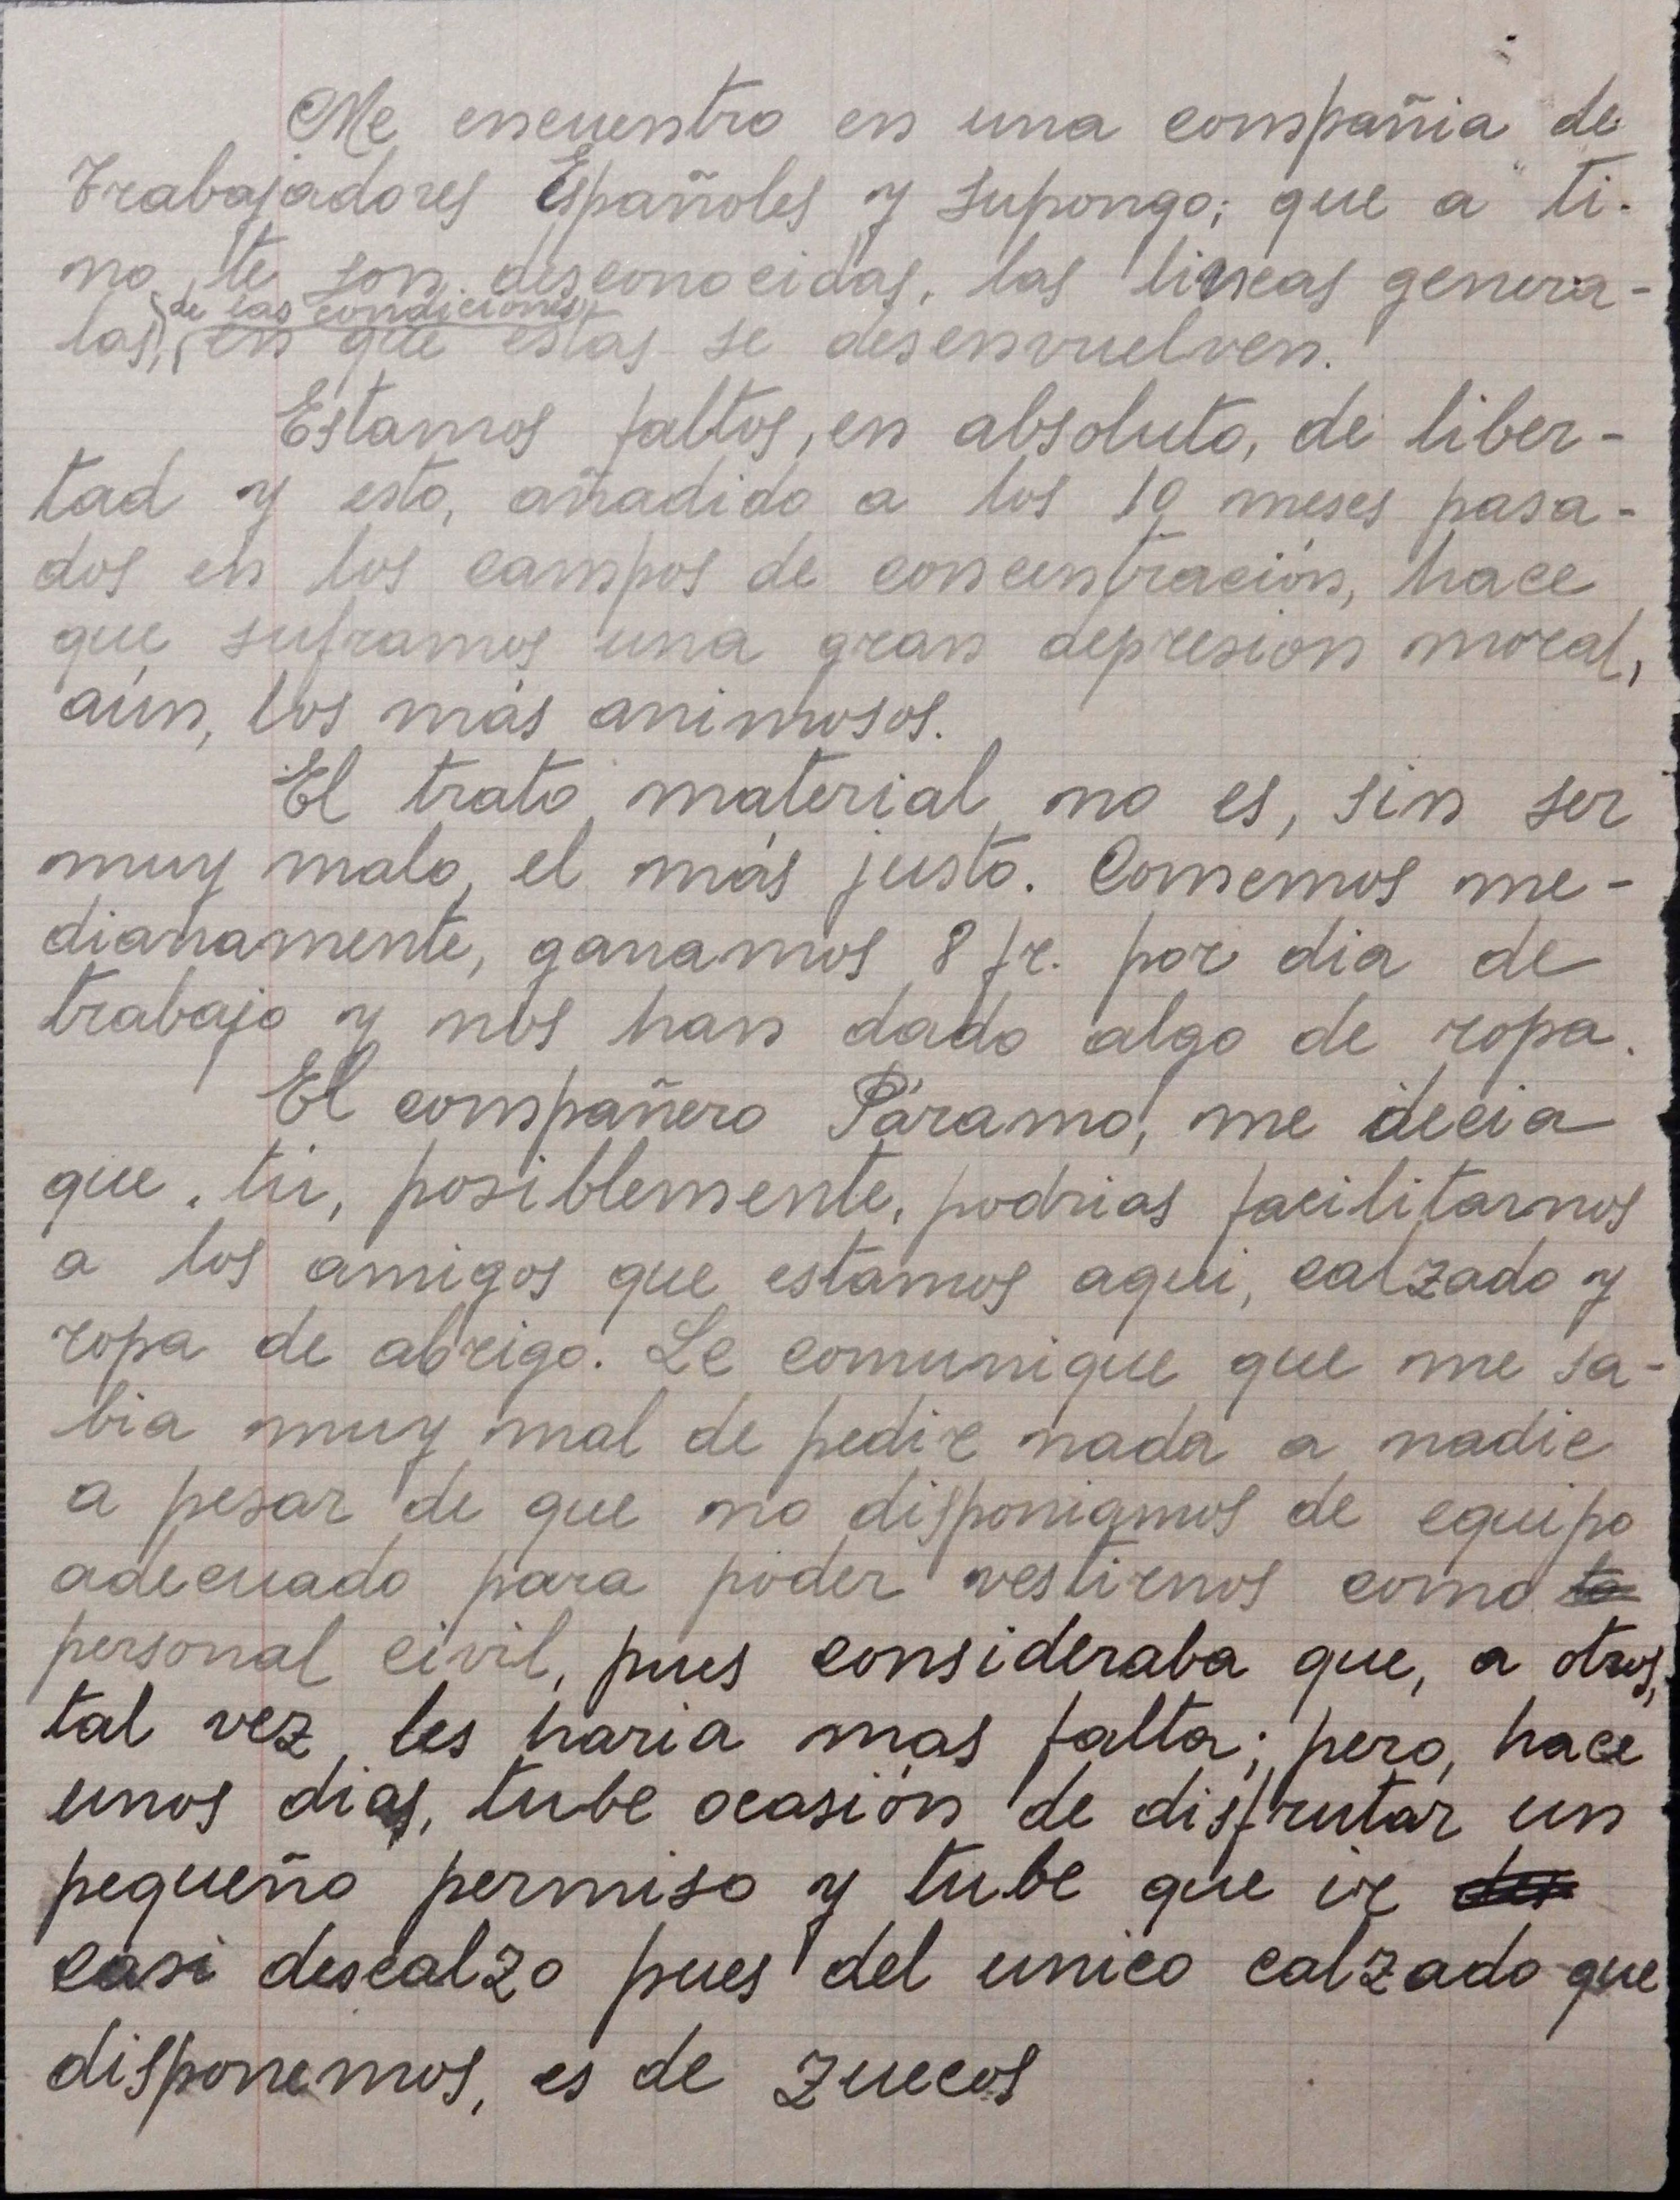 Me encuentro en una compañia de
Trabajadores Españoles y supongo; que a ti.
no te son desconocidas, las lineas genera-
las, de las condiciones
en que estas se desenvuelven.
Estamos faltos, en absoluto, de liber-
tad y esto, añadido a los 10 meses pasa-
dos en los campos de concentración, hace
que suframos una gran depresion moral,
aún, los más animosos.
El trato material no es, sin ser
muy malo, el más justo. Comemos me-
dianamente, ganamos 8 fr. por dia de
trabajo y nos han dado algo de ropa.
El compañero Páramo, me decia
que, tú, posiblemente, podrias facilitarnos
a los amigos que estamos aqui, calzado y
ropa de abrigo. Le comunique que me sa-
bia muy mal de pedir nada a nadie
a pesar de que no disponiamos de equipo
adecuado para poder vestirnos como
personal civil, pues consideraba que, a otros,
tal vez, les haria mas falta; pero, hace
unos dias, tube ocasión de disfrutar un
pequeño permiso y tube que ir
casi descalzo pues del unico calzado que
disponemos, es de zuecos